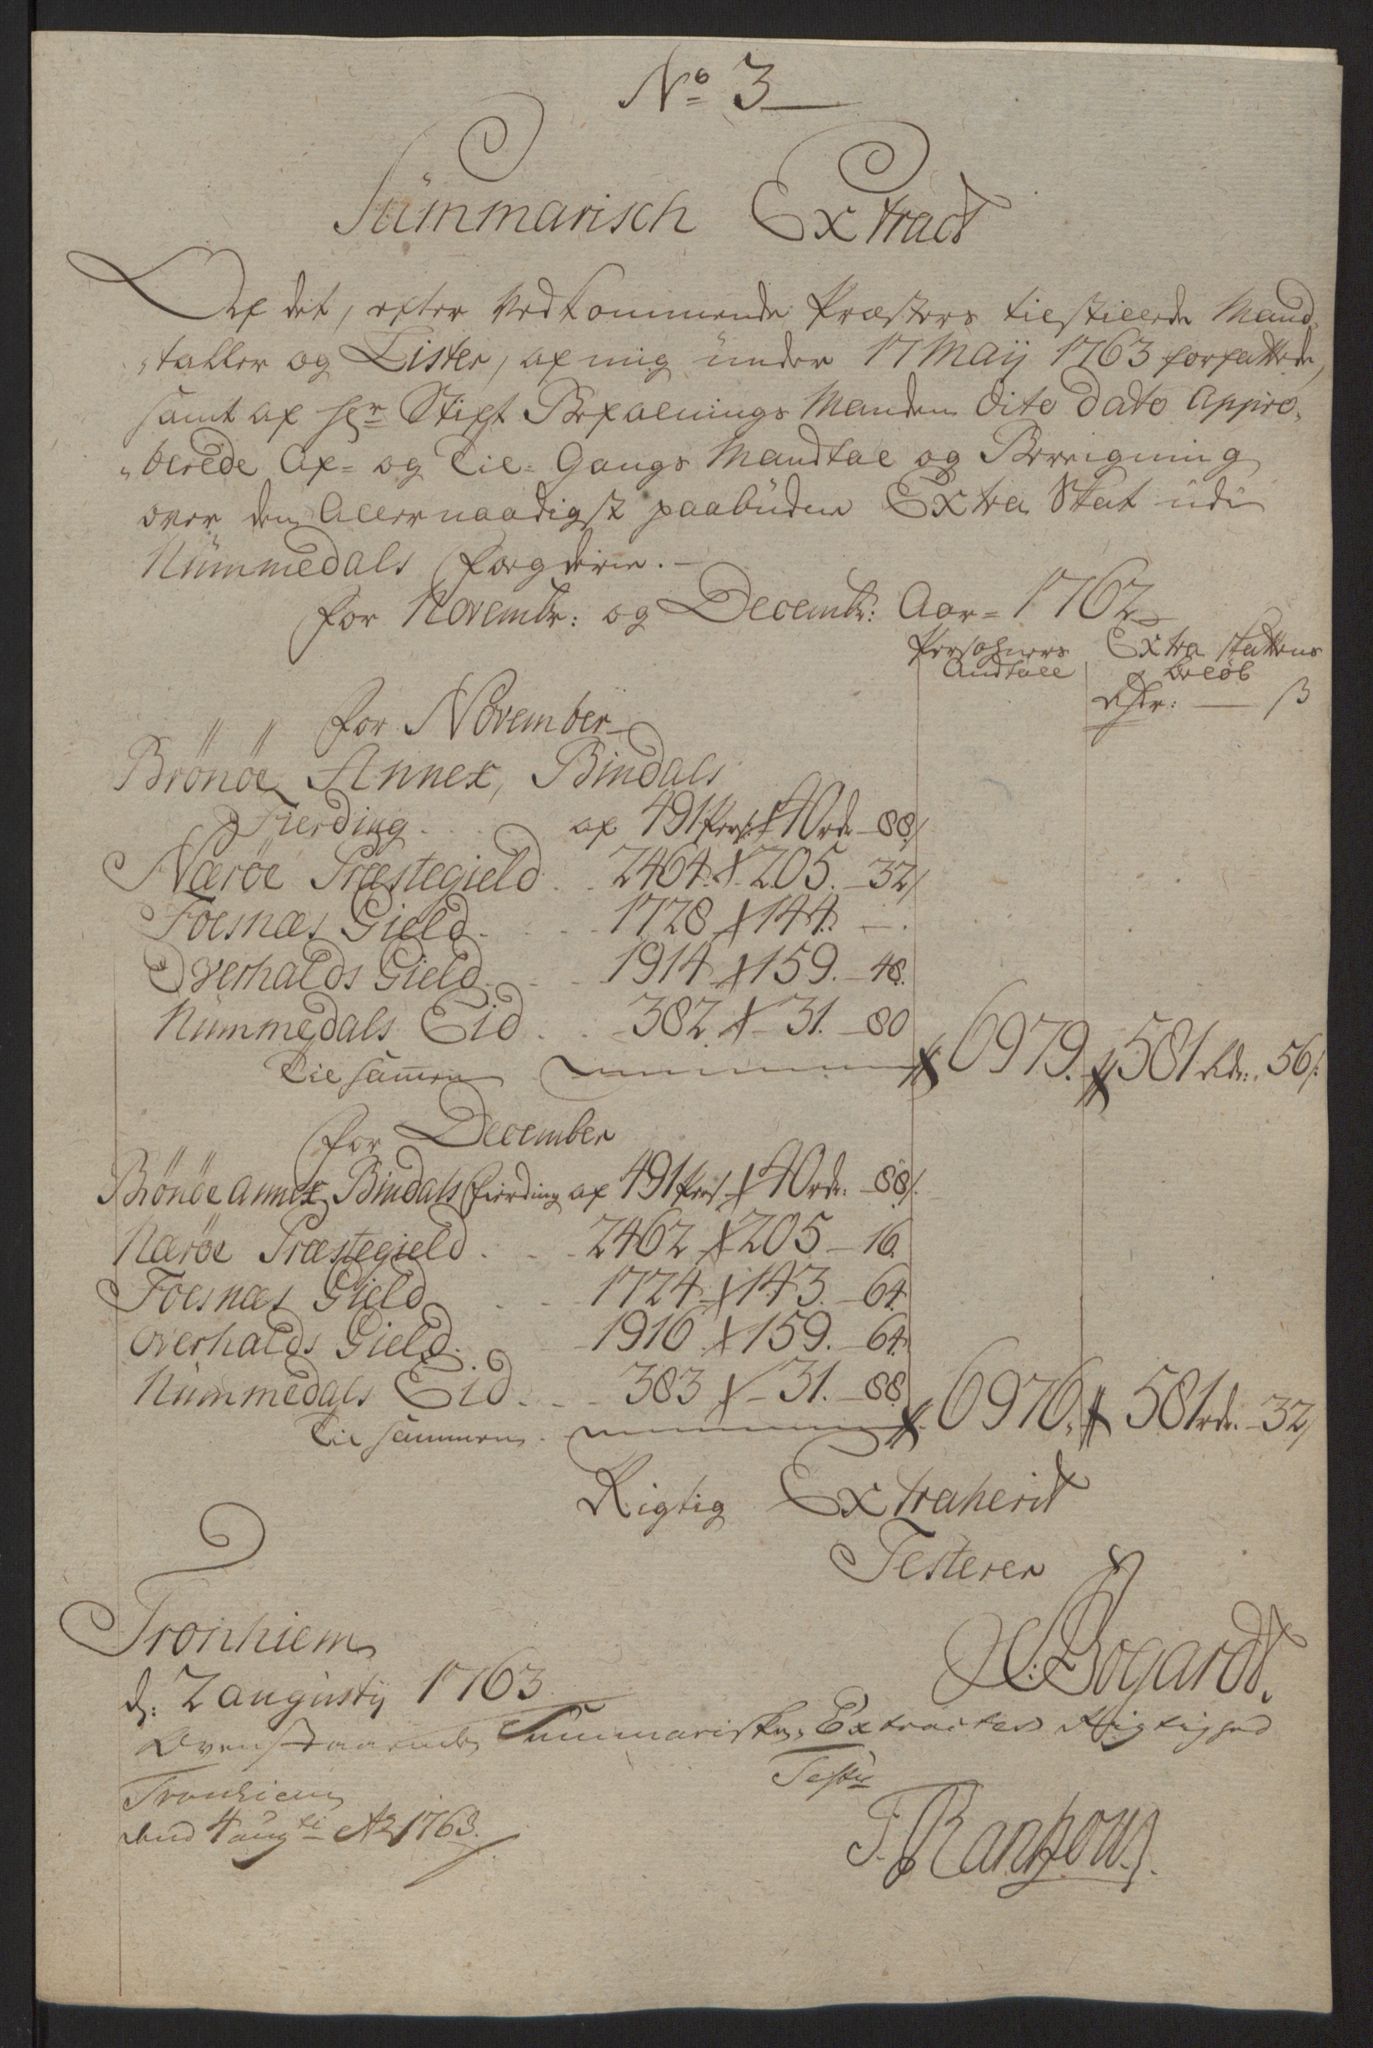 No 3
Summarisch Extract
Af det, efter Vedkommende Præsters tilstillede Mand-
"taller og Lister, af mig under 17 Maij 1763 forfattede,
samt af Hr Stift Befalnings Manden dito dato Appro-
"berede Af- og Til-Gangs Mandtal og Beregning
over den Allernaadigst paabudne Extra Skat udi
Nummedals Fogderie. -
for Novembr: og Decembr: Aar = 1762
Persohners Extra Skattens
Andtall beløb
Rdr: — ß
" " for November
Brönöe Annex, Bindals
Fierding . . . af 491 Pers: 40 rdr 88/
Næröe Præstegield . . 2464. 205. 32/
Foesnæs Gield . . . 1728 144. — .
Overhalds Gield . . . 1914 159. 48.
Nummedals Eid . . . 382. 31. 80
Tilsamen 6979. 581 Rdr: 56/.
for December
Brönöe annex Bindals Fierding af 491 Pers 40 rdr: 88/.
Næröe Præstegield . . . 2462 205 — 16.
Foesnæs Gield . . . 1724 143 — 64.
Overhalds Gield . . 1916 159. — 64.
Nummedals Eid . . . 383 31. — 88.
Tilsammen . 6976. 581 rdr. 32/
Rigtig Extraherit
Testerer
Tronhiem
d: 2 augustij 1763.
H: Bogardt.
Ovenstaaende Summariske Extractes Rigtighed
Tronhiem Teste
dend 4 augti Ao 1763.
F. Rantzou.